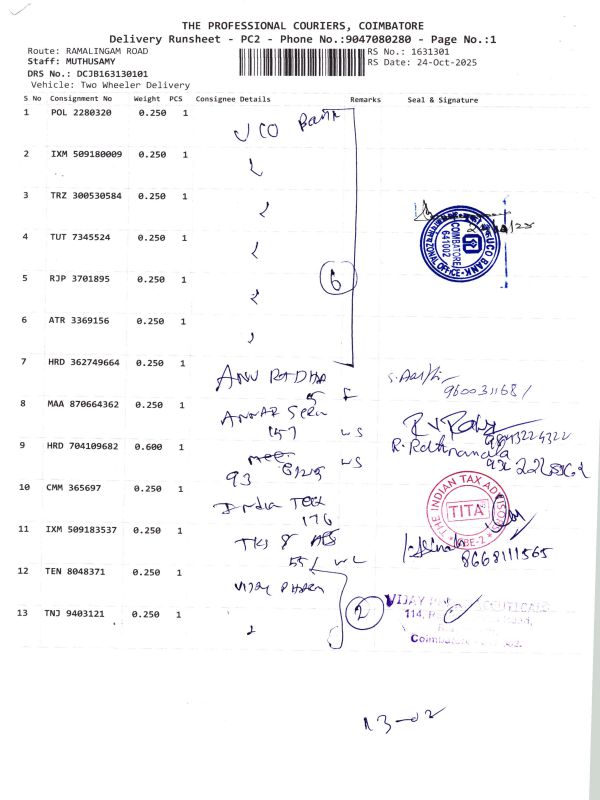 THE PROFESSIONAL COURIERS, COIMBATORE
Delivery Runsheet - PC2 - Phone No.:9047080280 - Page No.:1
Route: RAMALINGAM ROAD
RS No.: 1631301
Staff: MUTHUSAMY
RS Date: 24-Oct-2025
DRS No.: DCJB163130101
Vehicle: Two Wheeler Delivery
S No Consignment No Weight PCS Consignee Details Remarks Seal & Signature
1 POL 2280320 0.250 1
UCO Bank
2 IXM 509180009 0.250 1
3 TRZ 300530584 0.250 1
4 TUT 7345524 0.250 1
UCO BANK
COIMBATORE
641002
ZONAL OFFICE
5 RJP 3701895 0.250 1
6
6 ATR 3369156 0.250 1
7 HRD 362749664 0.250 1
ANU RADHA
9600311681
8 MAA 870664362 0.250 1
157 WS
9843224322
9 HRD 704109682 0.600 1
R. Rathnamala
93
WS
10 CMM 365697 0.250 1
India Tax
176
THE INDIAN TAX ADVISORS
TITA
CBE-2
11 IXM 509183537 0.250 1
TKS &
8668111565
55
12 TEN 8048371 0.250 1
Vijay Pharma
13 TNJ 9403121 0.250 1
2
VIJAY
114,
Coimbatore
13-02